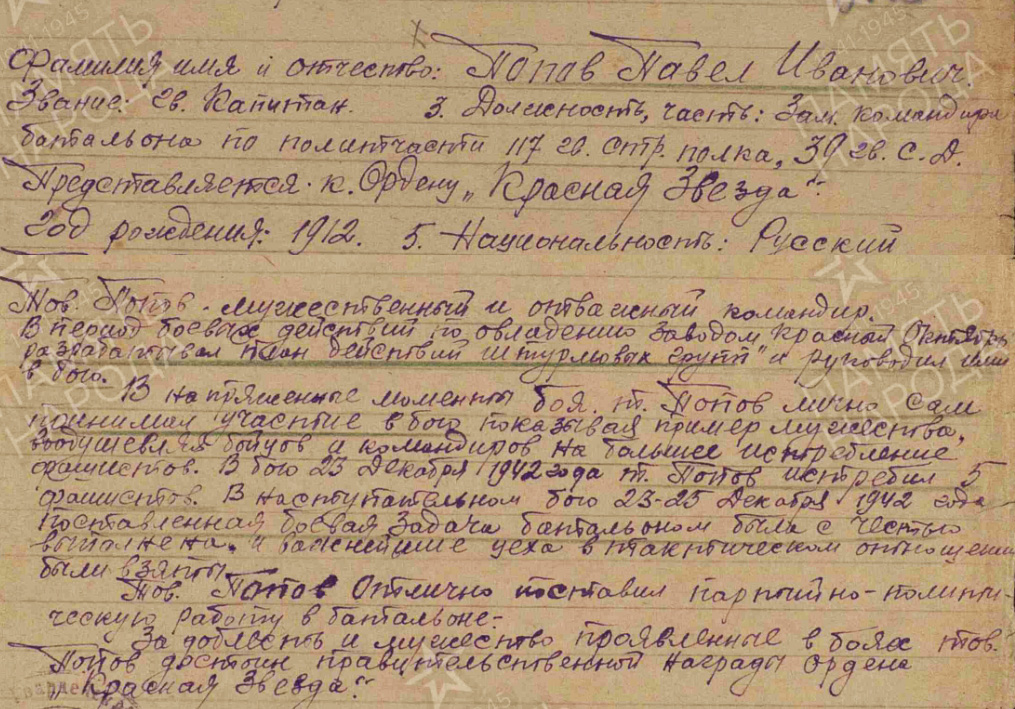 Фамилия имя и отчество: Попов Павел Иванович.
Звание: гв. Капитан. 3. Должность, часть: Зам. командира
батальона по политчасти 117 гв. стр. полка, 39 гв. С.Д.
Представляется к Ордену „Красная Звезда“.
Год рождения: 1912. 5. Национальность: Русский
Тов. Попов - мужественный и отважный командир.
В период боевых действий по овладению заводом „Красный Октябрь
разрабатывал план действий штурмовых групп" и руководил ими
в бою.
В напряженные моменты боя т. Попов лично сам
принимал участие в бою показывая пример мужества,
воодушевляя бойцов и командиров на большее истребление
фашистов. В бою 23 Декабря 1942 года т. Попов истребил 5
фашистов. В наступательном бою 23-25 Декабря 1942 года
поставленная боевая задача батальоном была с честью
выполнена, и важнейшие цеха в тактическом отношении
были взяты.
Тов. Попов отлично поставил партийно-полити-
ческую работу в батальоне.
За доблесть и мужество проявленные в боях тов.
Попов достоин правительственной награды ордена
„Красная Звезда“.
ПАМЯТЬ
НАРОДА